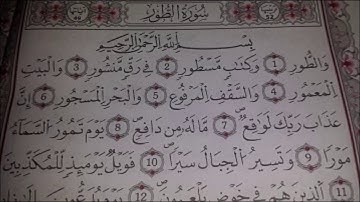 سُورَةُ الطُّورِ
بِسْمِ اللَّهِ الرَّحْمَٰنِ الرَّحِيمِ
وَالطُّورِ ١ وَكِتَابٍ مَّسْطُورٍ ٢ فِي رَقٍّ مَّنشُورٍ ٣ وَالْبَيْتِ
الْمَعْمُورِ ٤ وَالسَّقْفِ الْمَرْفُوعِ ٥ وَالْبَحْرِ الْمَسْجُورِ ٦ إِنَّ
عَذَابَ رَبِّكَ لَوَاقِعٌ ٧ مَّا لَهُ مِن دَافِعٍ ٨ يَوْمَ تَمُورُ السَّمَاءُ
مَوْرًا ٩ وَتَسِيرُ الْجِبَالُ سَيْرًا ١٠ فَوَيْلٌ يَوْمَئِذٍ لِّلْمُكَذِّبِينَ
١١ الَّذِينَ هُمْ فِي خَوْضٍ يَلْعَبُونَ ١٢ يَوْمَ يُدَعُّونَ